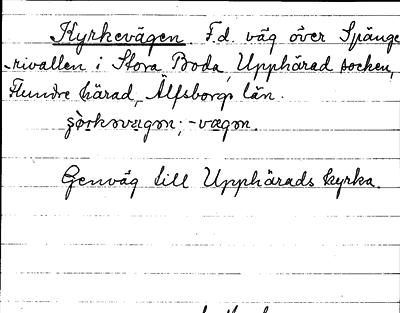 Kyrkevägen F.d. väg över Spänge
-rivallen i Stora Boda, Upphärad socken,
Flundre härad, Älfsborgs län.
ʂò̤rkəvægən; -vægən.
Genväg till Upphärads kyrka.